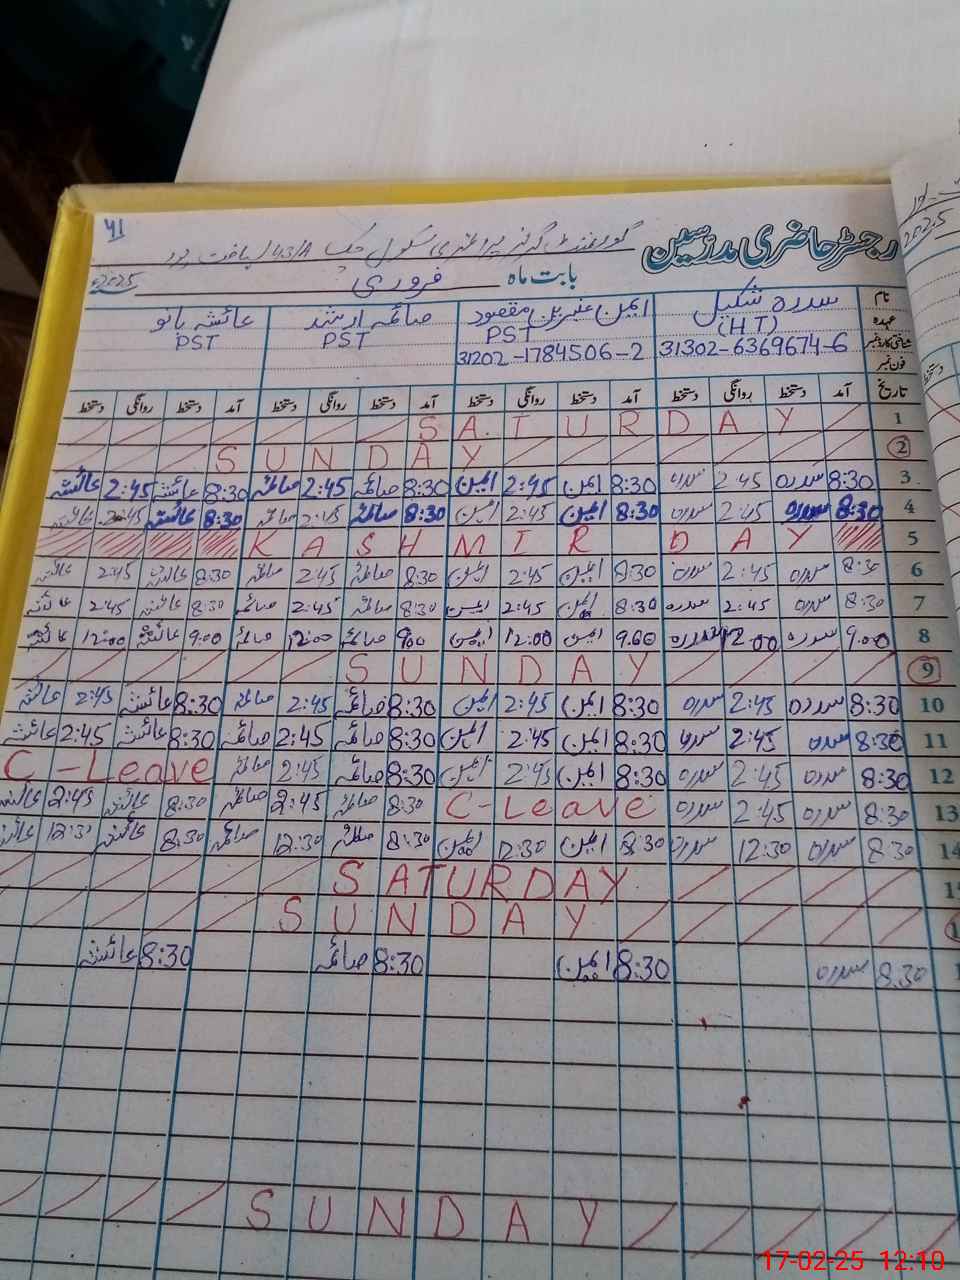 41
رجسٹر حاضری مدرسین گورنمنٹ گرلز پرائمری سکول چک 43/A لیاقت پور
بابت ماہ فروری 2025
نام سدرہ شکیل ایمن عنبرین مقصود صائمہ ارشد عائشہ بانو
عہدہ (HT) PST PST PST
شناختی کارڈ نمبر 31302-6369674-6 31202-1784506-2
فون نمبر
تاریخ آمد دستخط روانگی دستخط آمد دستخط روانگی دستخط آمد دستخط روانگی دستخط آمد دستخط روانگی دستخط
1 SATURDAY
2 SUNDAY
3 8:30 سدرہ 2:45 سدرہ 8:30 ایمن 2:45 ایمن 8:30 صائمہ 2:45 صائمہ 8:30 عائشہ 2:45 عائشہ
4 8:30 سدرہ 2:45 سدرہ 8:30 ایمن 2:45 ایمن 8:30 صائمہ 2:45 صائمہ 8:30 عائشہ 2:45 عائشہ
5 KASHMIR DAY
6 8:30 سدرہ 2:45 سدرہ 8:30 ایمن 2:45 ایمن 8:30 صائمہ 2:45 صائمہ 8:30 عائشہ 2:45 عائشہ
7 8:30 سدرہ 2:45 سدرہ 8:30 ایمن 2:45 ایمن 8:30 صائمہ 2:45 صائمہ 8:30 عائشہ 2:45 عائشہ
8 9:00 سدرہ 12:00 سدرہ 9:00 ایمن 12:00 ایمن 9:00 صائمہ 12:00 صائمہ 9:00 عائشہ 12:00 عائشہ
9 SUNDAY
10 8:30 سدرہ 2:45 سدرہ 8:30 ایمن 2:45 ایمن 8:30 صائمہ 2:45 صائمہ 8:30 عائشہ 2:45 عائشہ
11 8:30 سدرہ 2:45 سدرہ 8:30 ایمن 2:45 ایمن 8:30 صائمہ 2:45 صائمہ 8:30 عائشہ 2:45 عائشہ
12 8:30 سدرہ 2:45 سدرہ 8:30 ایمن 2:45 ایمن 8:30 صائمہ 2:45 صائمہ C-Leave
13 8:30 سدرہ 2:45 سدرہ C-Leave 8:30 صائمہ 2:45 صائمہ 8:30 عائشہ 2:45 عائشہ
14 8:30 سدرہ 12:30 سدرہ 8:30 ایمن 12:30 ایمن 8:30 صائمہ 12:30 صائمہ 8:30 عائشہ 12:30 عائشہ
SATURDAY
SUNDAY
8:30 سدرہ 8:30 ایمن 8:30 صائمہ 8:30 عائشہ
SUNDAY
2025
دستخط
17-02-25 12:10